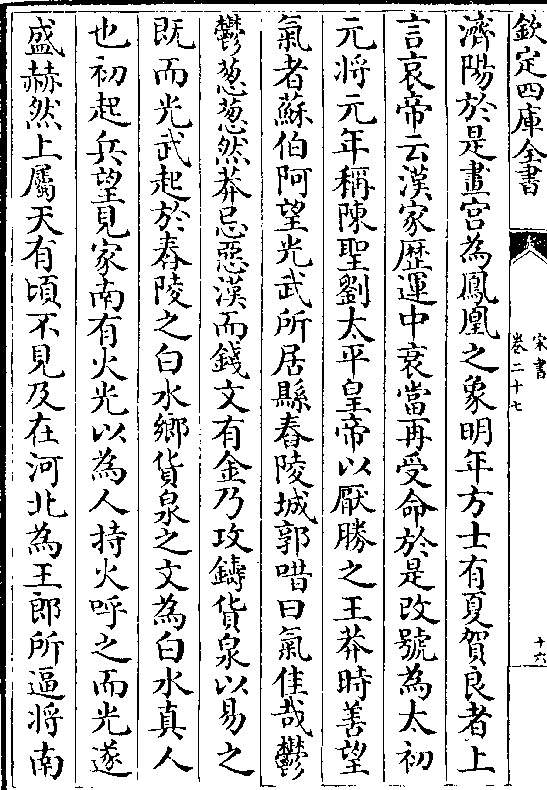 欽定四庫全書
宋書
卷二十七
十六
濟陽於是畫宮為鳳凰之象明年方士有夏賀良者上
言哀帝云漢家歷運中衰當再受命於是改號為太初
元將元年稱陳聖劉太平皇帝以厭勝之王莽時善望
氣者蘇伯阿望光武所居縣舂陵城郭唶曰氣佳哉鬱
鬱葱葱然莽忌惡漢而錢文有金乃改鑄貨泉以易之
既而光武起於舂陵之白水鄉貨泉之文為白水真人
也初起兵望見家南有火光以為人持火呼之而光遂
盛赫然上屬天有頃不見及在河北為王郎所逼將南